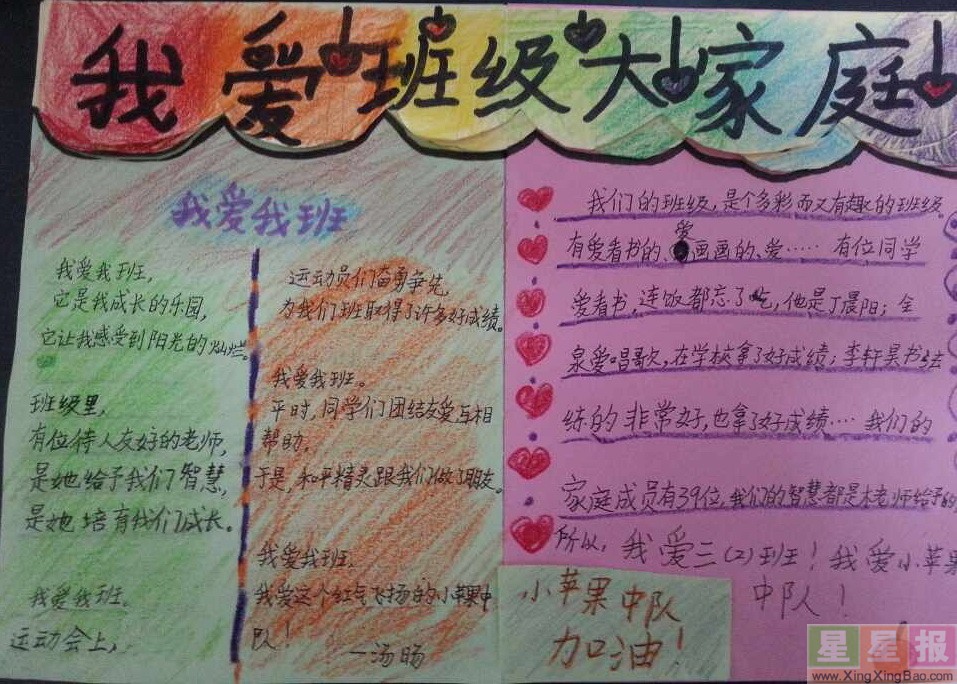 我爱班级大家庭
我爱我班
我爱我班,
它是我成长的乐园,
它让我感受到阳光的灿烂。
班级里,
有位待人友好的老师,
是她给予我们智慧,
是她培育我们成长。
我爱我班。
运动会上,
运动员们奋勇争先,
为我们班取得了许多好成绩。
我爱我班。
平时,同学们团结友爱互相
帮助,
于是,和平精灵跟我们做了朋友。
我爱我班,
我爱这个红气飞扬的小苹果中
队!
—汤旸
我们的班级,是个多彩而又有趣的班级。
有爱看书的、爱画画的、爱…… 有位同学
爱看书,连饭都忘了吃,他是丁晨阳;全
泉爱唱歌,在学校拿了好成绩;李轩昊书法
练的非常好,也拿了好成绩… 我们的
家庭成员有39位,我们的智慧都是林老师给予的
所以,我爱三(2)班!我爱小苹果
中队!
小苹果中队
加油!
星星报
www.XingXingBao.com